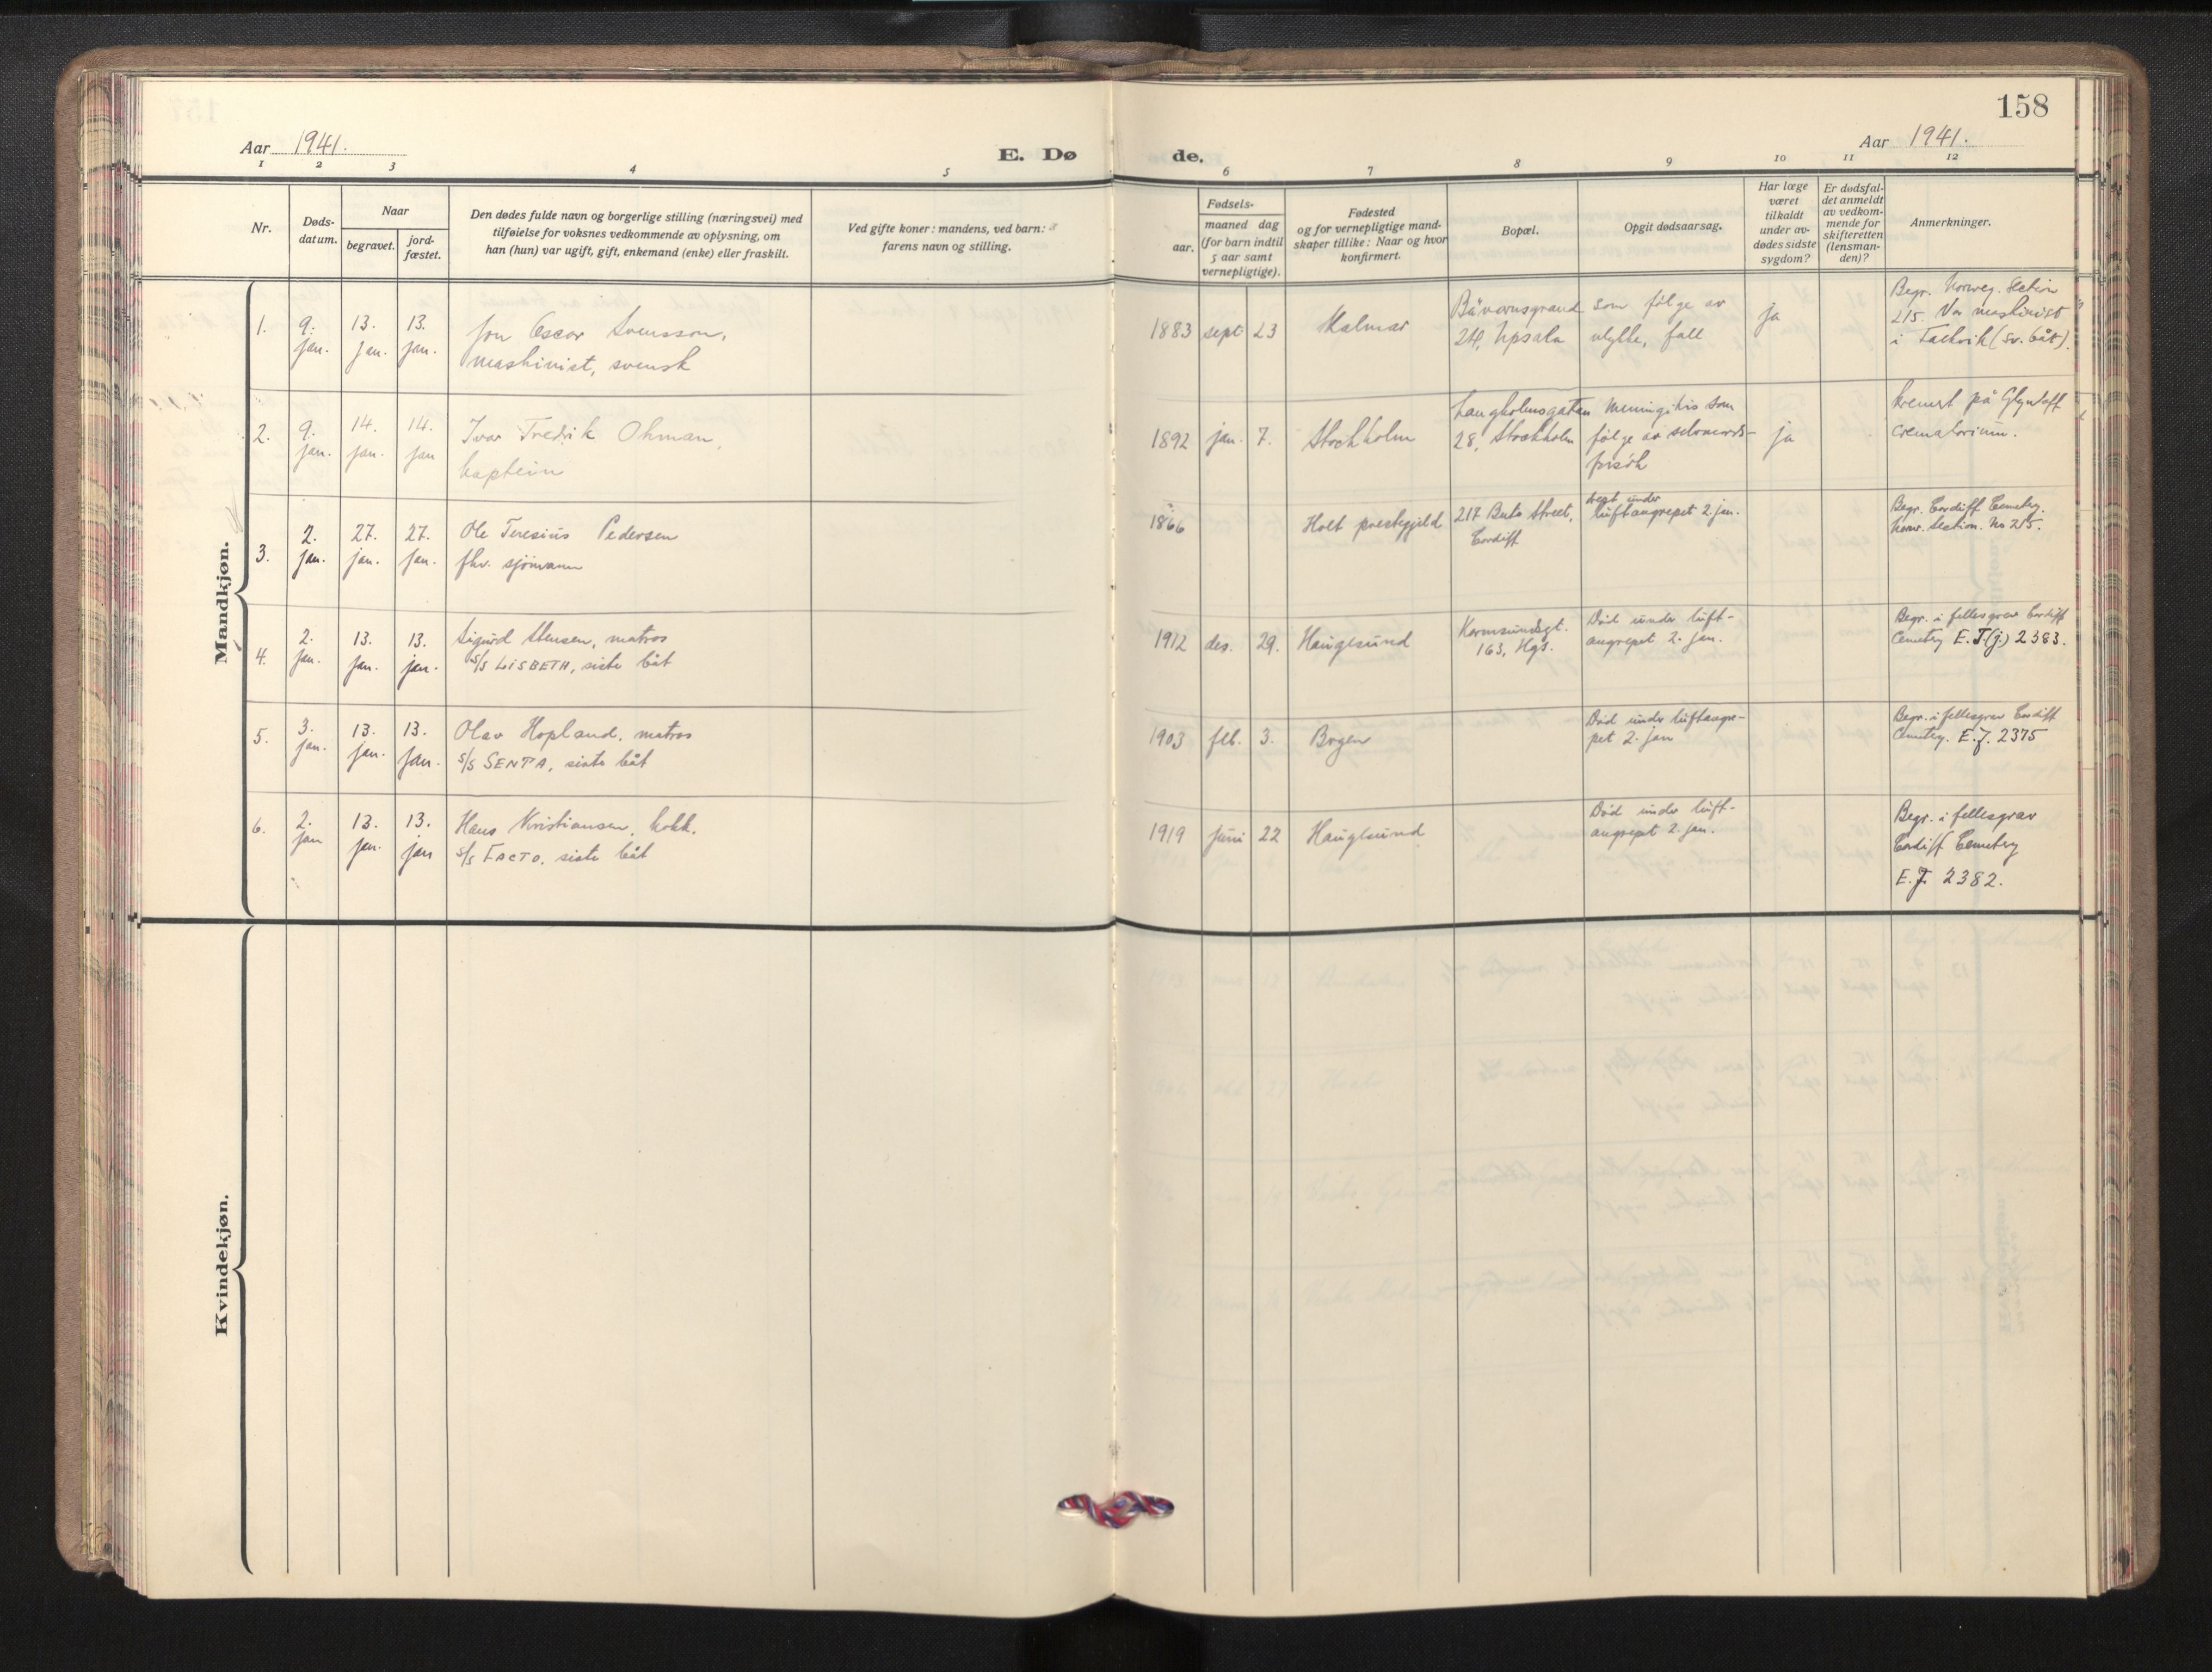 158
Aar 1941.
E. Dø
de.
Aar 1941.
1 2 3 4 5 6 7 8 9 10 11 12
Nr.
Døds-
datum.
Naar
begravet.
jord-
fæstet.
Den dødes fulde navn og borgerlige stilling (næringsvei) med
tilføielse for voksnes vedkommende av oplysning, om
han (hun) var ugift, gift, enkemand (enke) eller fraskilt.
Ved gifte koner: mandens, ved barn:
farens navn og stilling.
Fødsels-
aar.
maaned dag
(for barn indtil
5 aar samt
vernepligtige).
Fødested
og for vernepligtige mand-
skaper tillike: Naar og hvor
konfirmert.
Bopæl.
Opgit dødsaarsag.
Har læge
været
tilkaldt
under av-
dødes sidste
sygdom?
Er dødsfal-
det anmeldt
av vedkom-
mende for
skifteretten
(lensman-
den)?
Anmerkninger.
Mandkjøn.
1.
9.
jan.
13.
jan.
13.
jan.
Jon Oscar Svensson,
maskinist, svensk
1883 sept 23
Kalmar
24, Upsala
som følge av
ulykke, fall
ja
Begr. Norweg. Section
215. Var maskinist
i (sv. båt).
2.
9.
jan.
14.
jan.
14.
jan
Ivar Fredrik Ohman,
kaptein
1892 jan. 7.
Stockholm
Langholmsgatan
28, Stockholm
som
følge av selvmords-
forsök
ja
kremert på
crematorium.
3.
2.
jan.
27.
jan.
27.
jan.
Ole Teresius Pedersen
fhv. sjömann
1866
Holt prestegjeld
217 Bute Street,
Cardiff
drept under
luftangrepet 2. jan.
Begr. Cardiff Cemetery.
Norw. Section. No 215.
4.
2.
jan.
13.
jan.
13.
jan.
Sigurd Stensen, matros
s/s LISBETH, siste båt
1912 des. 29.
Haugesund
Karmsundsgt.
163, Hgs.
Död under luft-
angrepet 2. jan.
Begr. i fellesgrav Cardiff
Cemetery E.J(j.) 2383.
5.
3.
jan.
13.
jan.
13.
jan.
Olav Hopland, matros
s/s SENTA, siste båt
1903 feb. 3.
Död under luftangre-
pet 2. jan
Begr. i fellesgrav Cardiff
Cemetery. E.J. 2375
6.
2.
jan
13.
jan.
13.
jan
Hans Kristiansen, kokk.
s/s FACTO, siste båt
1919 juni 22
Haugesund
Död under luft-
angrepet 2. jan.
Begr. i fellesgrav
Cardiff Cemetery
E.J. 2382.
Kvindekjøn.